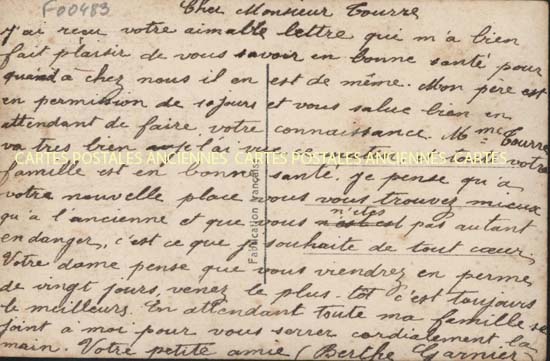 F00483
Cher Monsieur Tourre
J'ai recu votre aimable lettre qui m'a bien
fait plaisir de vous savoir en bonne santé pour
quand à chez nous il en est de même. Mon père est
en permission de 10 jours et vous salue bien en
attendant de faire votre connaissance. Mme Tourre
va tres bien je l'ai vue votre
CARTES POSTALES ANCIENNES CARTES POSTALES ANCIENNES CARTES POSTALES ANCIENNES
famille est en bonne santé, je pense qu'a
votre nouvelle place vous vous trouvez mieux
qu'a l'ancienne et que vous n'etes pas autant
en danger, c'est ce que je souhaite de tout cœur,
Votre dame pense que vous viendrez en perme
de vingt jours, venez le plus tôt c'est toujours
le meilleurs. En attendant toute ma famille se
joint a moi pour vous serrer cordialement la
main. Votre petite amie (Berthe Garnier)
Fabrication française